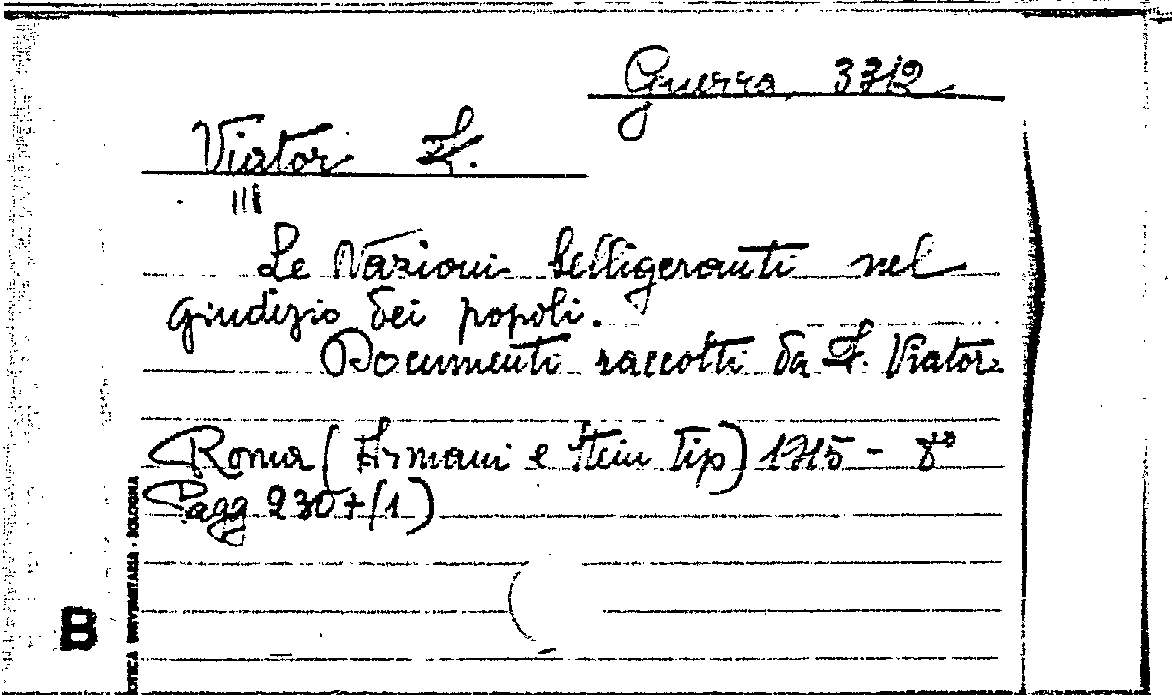 Guerra 3312
Viator F.
Le Nazioni belligeranti nel
giudizio dei popoli.
Documenti raccolti da F. Viator
Roma (Armani e Stein Tip) 1915 - 8°
Pagg 230+(1)
B
OTECA UNIVERSITARIA - BOLOGNA